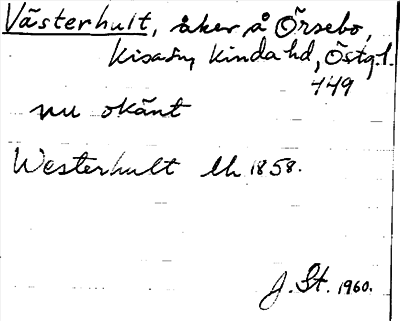 Västerhult, åker å Örsebo,
Kisa sn, Kinda hd, Östg.l.
449
nu okänt
Westerhult lh 1858.
J. St. 1960.